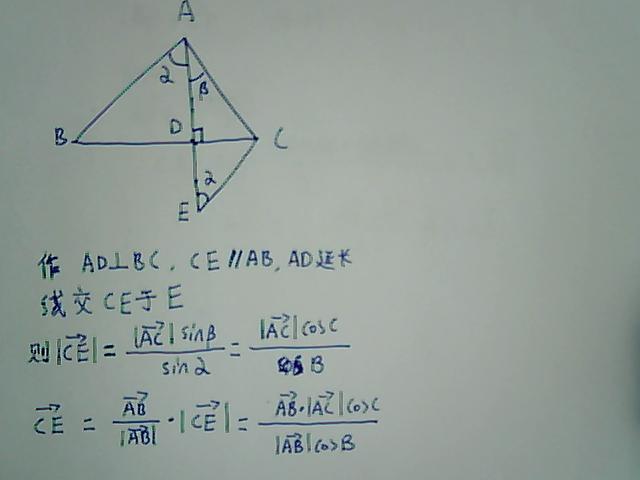 A
2 β
B D C
2
E
作 AD⊥BC, CE∥AB, AD延长
线交CE于E
则|\overrightarrow{CE}| = \frac{|\overrightarrow{AC}| sinβ}{sin2} = \frac{|\overrightarrow{AC}| cosC}{cosB}
\overrightarrow{CE} = \frac{\overrightarrow{AB}}{|\overrightarrow{AB}|} · |\overrightarrow{CE}| = \frac{\overrightarrow{AB}·|\overrightarrow{AC}|cosC}{|\overrightarrow{AB}|cosB}